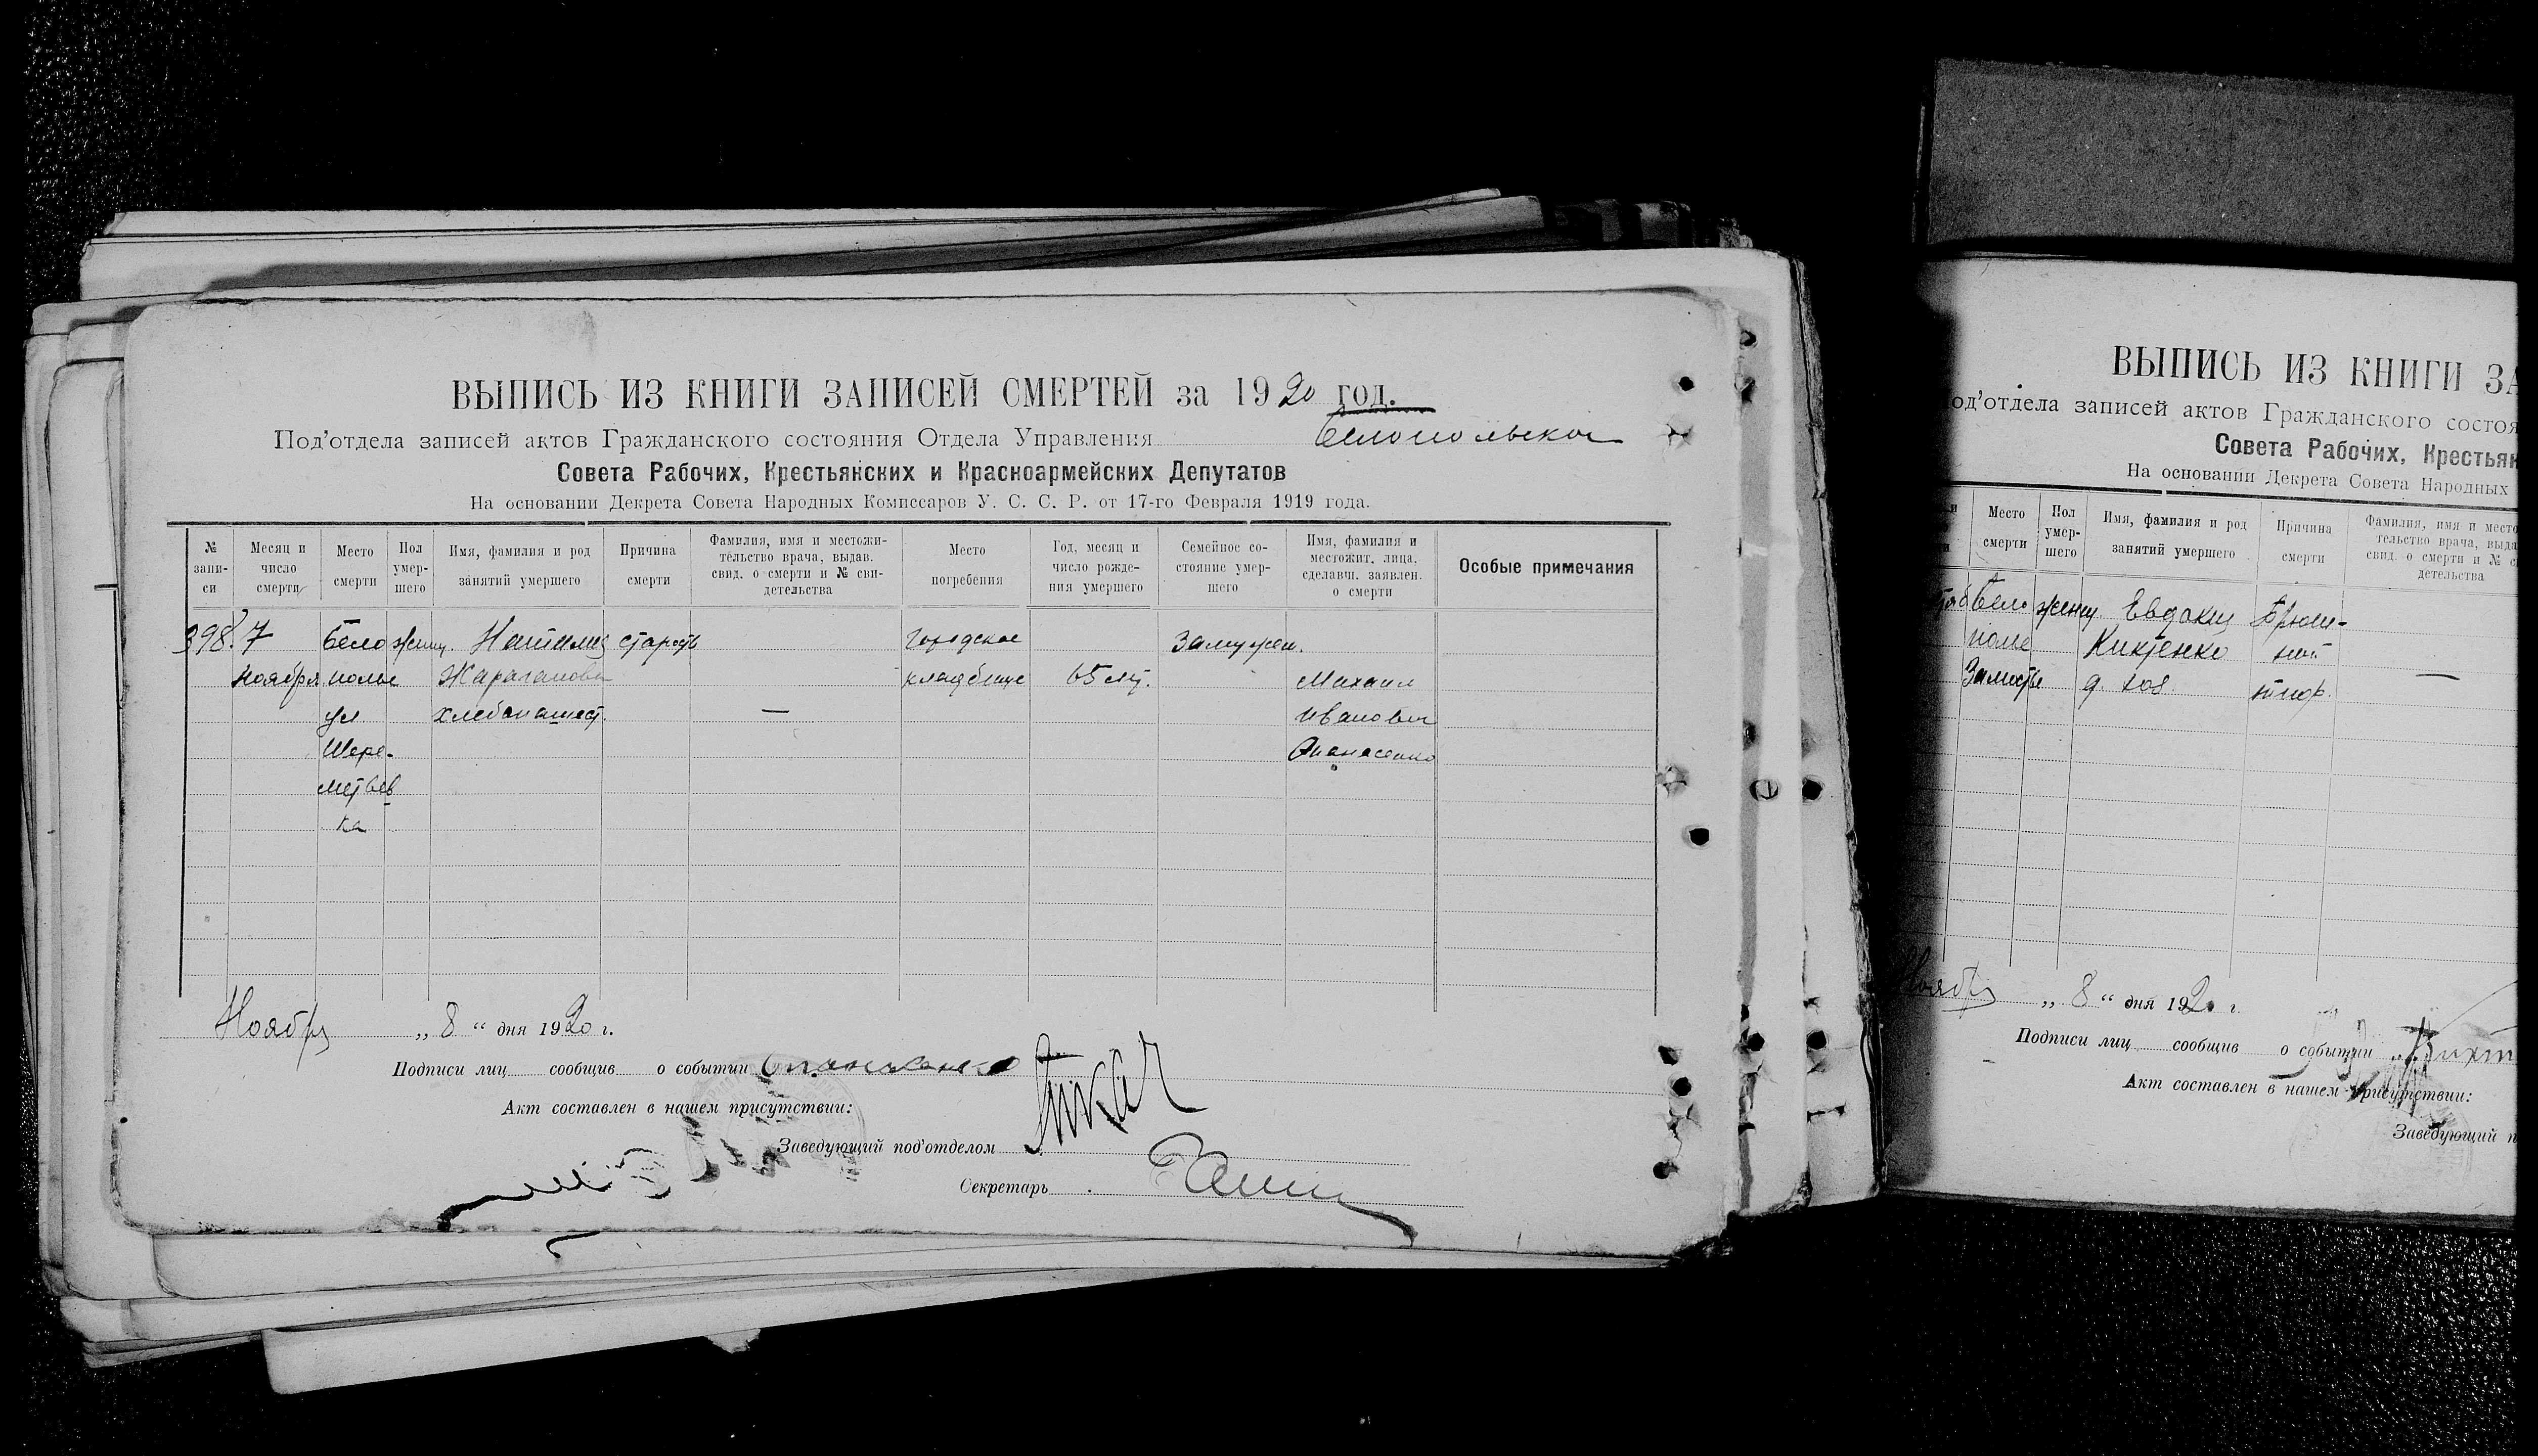 ВЫПИСЬ ИЗ КНИГИ ЗАПИСЕЙ СМЕРТЕЙ за 1920 год.
Под'отдела записей актов Гражданского состояния Отдела Управления Белопольског
Совета Рабочих, Крестьянских и Красноармейских Депутатов
На основании Декрета Совета Народных Комиссаров У. С. С. Р. от 17-го Февраля 1919 года.
№ запи-
си
Месяц и
число
смерти
Место
смерти
Пол
умер-
шего
Имя, фамилия и род
занятий умершего
Причина
смерти
Фамилия, имя и местожи-
тельство врача, выдав.
свид. о смерти и № сви-
детельства
Место
погребения
Год, месяц и
число рожде-
ния умершего
Семейное со-
стояние умер-
шего
Имя, фамилия и
местожит, лица,
сделавш. заявлен.
о смерти
Особые примечания
398.
7
Ноября
Бело
полье
ул
Шере-
метьев
ка
женщ.
Наталия
хлебопашест.
старость
—
Городское
кладбище
65 лет.
Замужем.
Михаил
Иванович
Опанасенко
Ноября „ 8 “ дня 1920 г.
Подписи лиц сообщив о событии Опанасенко
Акт составлен в нашем присутствии:
Заведующий под'отделом
Секретарь
ВЫПИСЬ ИЗ КНИГИ ЗА
од'отдела записей актов Гражданского состоя
Совета Рабочих, Крестьян
На основании Декрета Совета Народных
Место
смерти
Пол
умер-
шего
Имя, фамилия и род
занятий умершего
Причина
смерти
Фамилия, имя и место
тельство врача, выда
свид. о смерти и № с
детельства
Бело
полье
Замостье
женщ.
Евдокия
Киктенко
д. хоз.
Брюш-
ной
тиф.
—
Ноября „ 8 “ дня 1920 г.
Подписи лиц сообщив о событии
Акт составлен в нашем присутствии:
Заведующий п